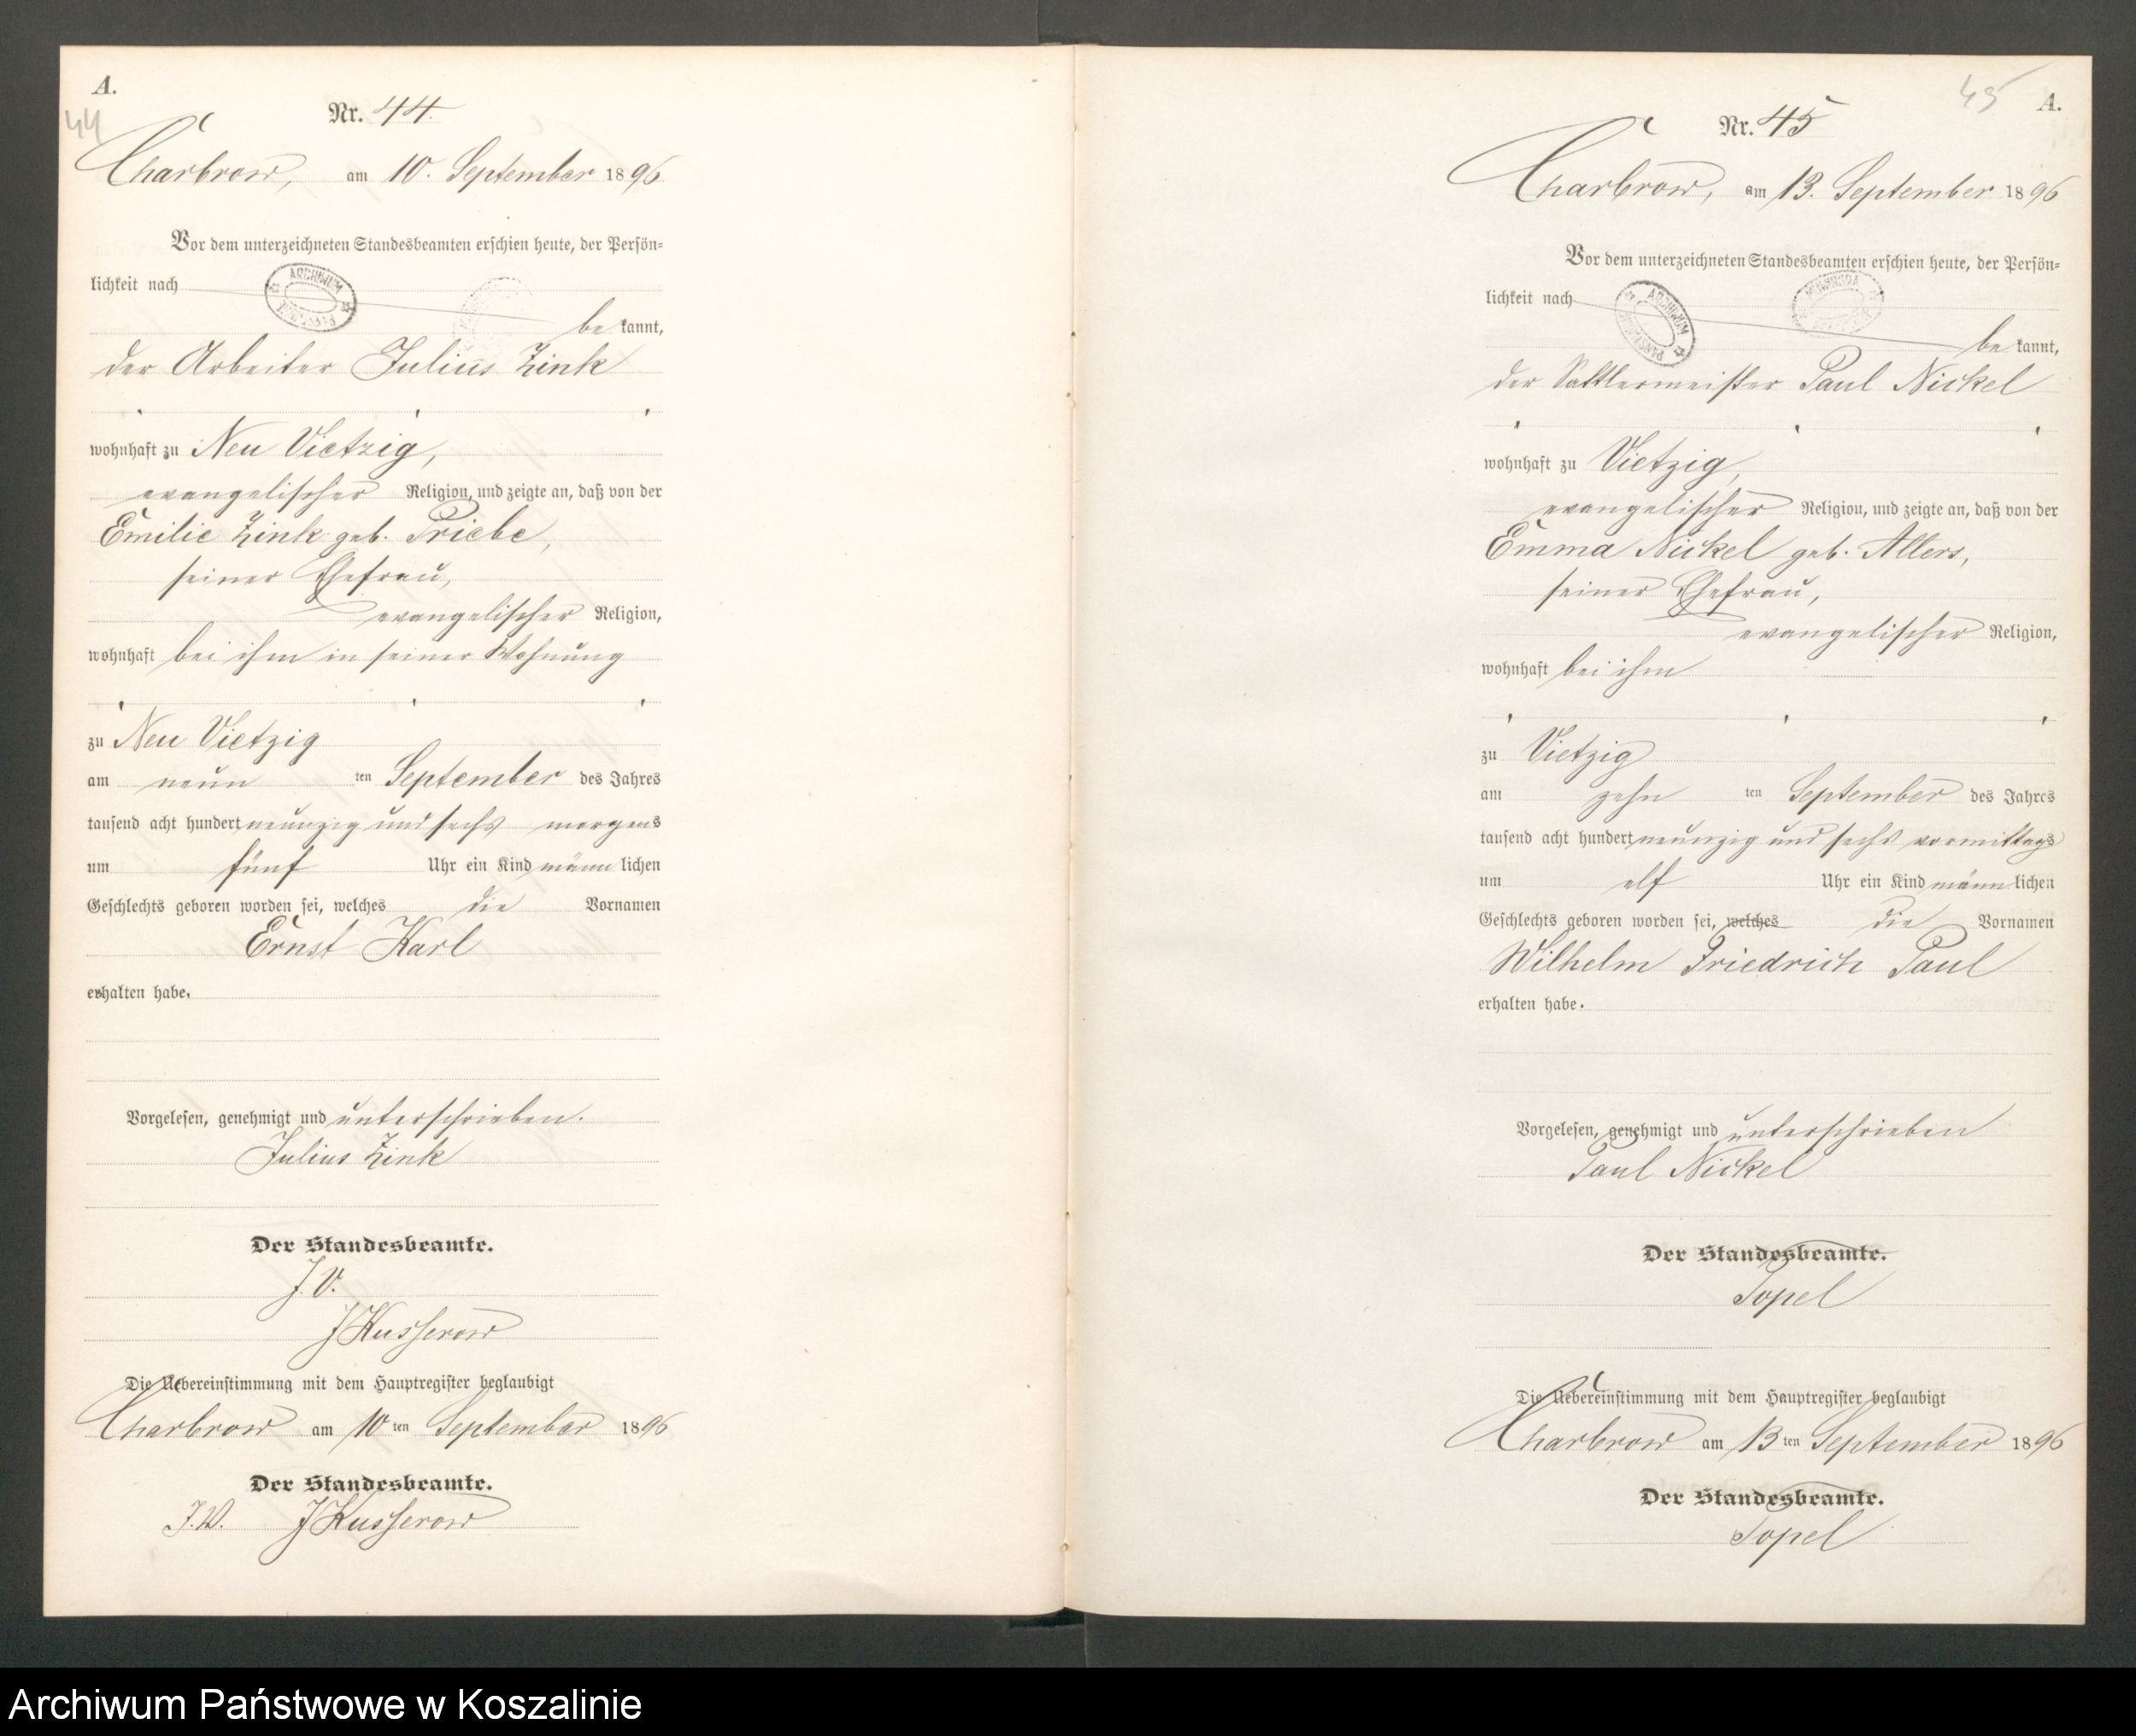 A.
44
Nr. 44.
Charbrow, am 10. September 1896
Vor dem unterzeichneten Standesbeamten erschien heute, der Persön-
lichkeit nach
ARCHIWUM
be kannt,
der Arbeiter Julius Zink
wohnhaft zu Neu Vietzig,
evangelischer Religion, und zeigte an, daß von der
Emilie Zink geb. Priebe,
seiner Ehefrau,
evangelischer Religion,
wohnhaft bei ihm in seiner Wohnung
zu Neu Vietzig
am neun ten September des Jahres
tausend acht hundert neunzig und sechs morgens
um fünf Uhr ein Kind männ lichen
Geschlechts geboren worden sei, welches die Vornamen
Ernst Karl
erhalten habe.
Vorgelesen, genehmigt und unterschrieben.
Julius Zink
Der Standesbeamte.
J.V.
J Kusserow
Die Uebereinstimmung mit dem Hauptregister beglaubigt
Charbrow am 10ten September 1896
Der Standesbeamte.
J.V. J Kusserow
45
A.
Nr. 45
Charbrow, am 13. September 1896
Vor dem unterzeichneten Standesbeamten erschien heute, der Persön-
lichkeit nach
ARCHIWUM
be kannt,
der Sattlermeister Paul Nickel
wohnhaft zu Vietzig,
evangelischer Religion, und zeigte an, daß von der
Emma Nickel geb. Allers,
seiner Ehefrau,
evangelischer Religion,
wohnhaft bei ihm
zu Vietzig
am zehn ten September des Jahres
tausend acht hundert neunzig und sechs vormittags
um elf Uhr ein Kind männ lichen
Geschlechts geboren worden sei, welches die Vornamen
Wilhelm Friedrich Paul
erhalten habe.
Vorgelesen, genehmigt und unterschrieben
Paul Nickel
Der Standesbeamte.
Topel
Die Uebereinstimmung mit dem Hauptregister beglaubigt
Charbrow am 13ten September 1896
Der Standesbeamte.
Topel
Archiwum Państwowe w Koszalinie